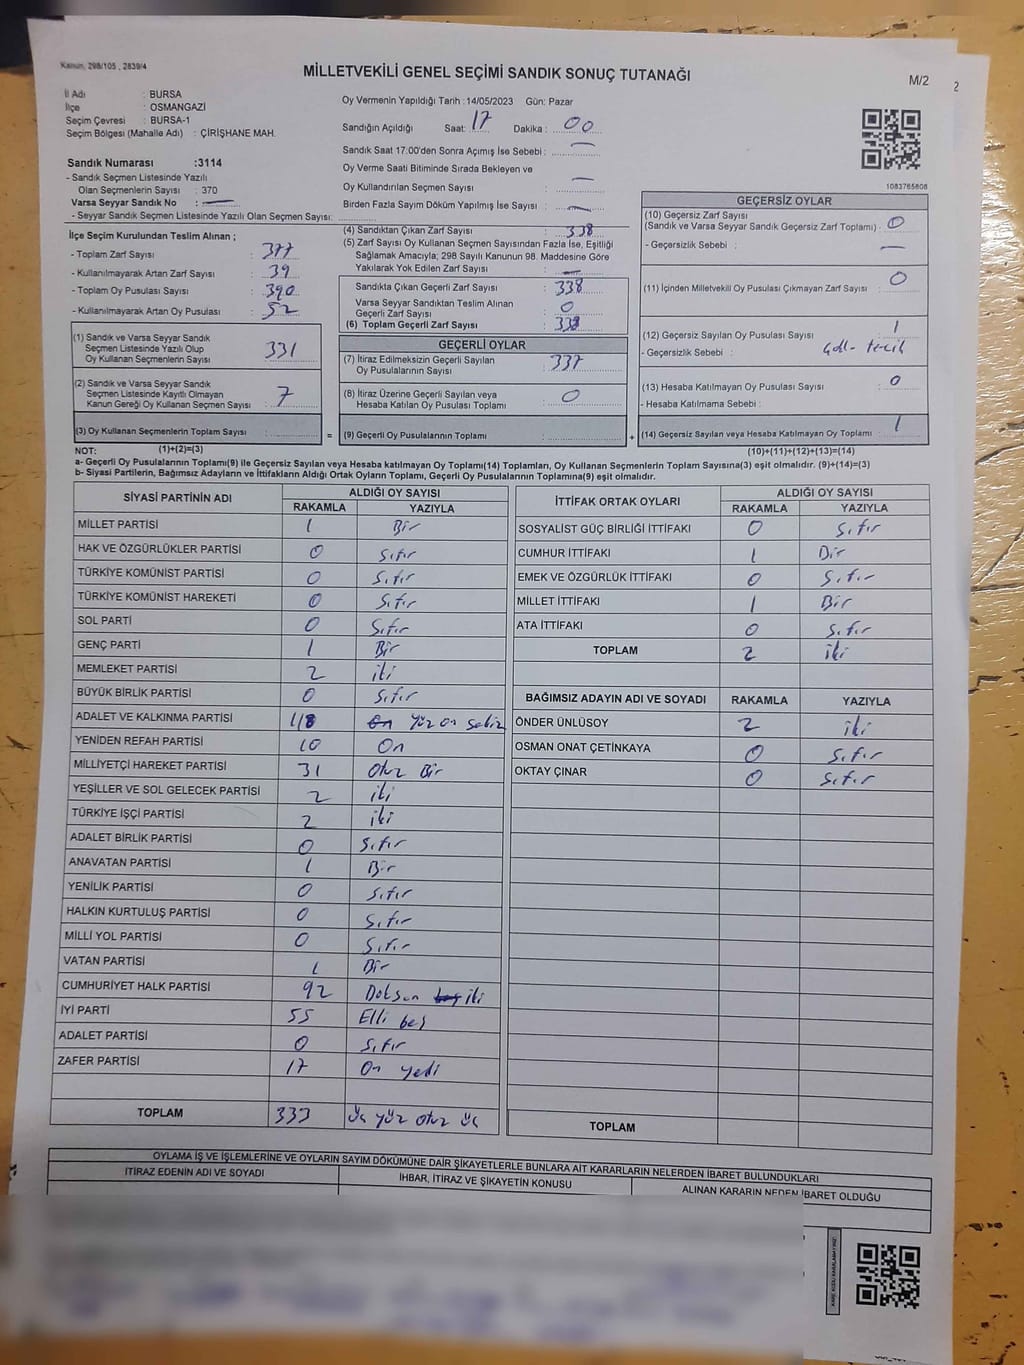 Kanun, 298/105 , 2839/4
MİLLETVEKİLİ GENEL SEÇİMİ SANDIK SONUÇ TUTANAĞI
M/2
2
İl Adı : BURSA
İlçe : OSMANGAZİ
Seçim Çevresi : BURSA-1
Seçim Bölgesi (Mahalle Adı) : ÇİRİŞHANE MAH.
Sandık Numarası :3114
- Sandık Seçmen Listesinde Yazılı
Olan Seçmenlerin Sayısı : 370
Varsa Seyyar Sandık No : —
- Seyyar Sandık Seçmen Listesinde Yazılı Olan Seçmen Sayısı:
Oy Vermenin Yapıldığı Tarih :14/05/2023 Gün: Pazar
Sandığın Açıldığı Saat: 17 Dakika : 00
Sandık Saat 17:00'den Sonra Açımış İse Sebebi : —
Oy Verme Saati Bitiminde Sırada Bekleyen ve
Oy Kullandırılan Seçmen Sayısı : —
Birden Fazla Sayım Döküm Yapılmış İse Sayısı : —
1083765808
İlçe Seçim Kurulundan Teslim Alınan ;
- Toplam Zarf Sayısı : 377
- Kullanılmayarak Artan Zarf Sayısı : 39
- Toplam Oy Pusulası Sayısı : 390
- Kullanılmayarak Artan Oy Pusulası : 52
(1) Sandık ve Varsa Seyyar Sandık
Seçmen Listesinde Yazılı Olup
Oy Kullanan Seçmenlerin Sayısı : 331
(2) Sandık ve Varsa Seyyar Sandık
Seçmen Listesinde Kayıtlı Olmayan
Kanun Gereği Oy Kullanan Seçmen Sayısı : 7
(3) Oy Kullanan Seçmenlerin Toplam Sayısı :
(4) Sandıktan Çıkan Zarf Sayısı : 338
(5) Zarf Sayısı Oy Kullanan Seçmen Sayısından Fazla İse, Eşitliği
Sağlamak Amacıyla; 298 Sayılı Kanunun 98. Maddesine Göre
Yakılarak Yok Edilen Zarf Sayısı : —
Sandıkta Çıkan Geçerli Zarf Sayısı : 338
Varsa Seyyar Sandıktan Teslim Alınan
Geçerli Zarf Sayısı : 0
(6) Toplam Geçerli Zarf Sayısı : 338
GEÇERLİ OYLAR
(7) İtiraz Edilmeksizin Geçerli Sayılan
Oy Pusulalarının Sayısı : 337
(8) İtiraz Üzerine Geçerli Sayılan veya
Hesaba Katılan Oy Pusulası Toplamı : 0
= (9) Geçerli Oy Pusulalarının Toplamı :
GEÇERSİZ OYLAR
(10) Geçersiz Zarf Sayısı
(Sandık ve Varsa Seyyar Sandık Geçersiz Zarf Toplamı) : 0
- Geçersizlik Sebebi : —
(11) İçinden Milletvekil Oy Pusulası Çıkmayan Zarf Sayısı : 0
(12) Geçersiz Sayılan Oy Pusulası Sayısı : 1
- Geçersizlik Sebebi :
(13) Hesaba Katılmayan Oy Pusulası Sayısı : 0
- Hesaba Katılmama Sebebi :
+ (14) Geçersiz Sayılan veya Hesaba Katılmayan Oy Toplamı : 1
NOT: (1)+(2)=(3) (10)+(11)+(12)+(13)=(14)
a- Geçerli Oy Pusulalarının Toplamı(9) ile Geçersiz Sayılan veya Hesaba katılmayan Oy Toplamı(14) Toplamları, Oy Kullanan Seçmenlerin Toplam Sayısına(3) eşit olmalıdır. (9)+(14)=(3)
b- Siyasi Partilerin, Bağımsız Adayların ve İttifakların Aldığı Ortak Oyların Toplamı, Geçerli Oy Pusulalarının Toplamına(9) eşit olmalıdır.
SİYASİ PARTİNİN ADI ALDIĞI OY SAYISI
RAKAMLA YAZIYLA
MİLLET PARTİSİ 1 Bir
HAK VE ÖZGÜRLÜKLER PARTİSİ 0 Sıfır
TÜRKİYE KOMÜNİST PARTİSİ 0 Sıfır
TÜRKİYE KOMÜNİST HAREKETİ 0 Sıfır
SOL PARTİ 0 Sıfır
GENÇ PARTİ 1 Bir
MEMLEKET PARTİSİ 2 iki
BÜYÜK BİRLİK PARTİSİ 0 Sıfır
ADALET VE KALKINMA PARTİSİ 118 On Yüz on sekiz
YENİDEN REFAH PARTİSİ 10 On
MİLLİYETÇİ HAREKET PARTİSİ 31 Otuz Bir
YEŞİLLER VE SOL GELECEK PARTİSİ 2 iki
TÜRKİYE İŞÇİ PARTİSİ 2 iki
ADALET BİRLİK PARTİSİ 0 Sıfır
ANAVATAN PARTİSİ 1 Bir
YENİLİK PARTİSİ 0 Sıfır
HALKIN KURTULUŞ PARTİSİ 0 Sıfır
MİLLİ YOL PARTİSİ 0 Sıfır
VATAN PARTİSİ 1 Bir
CUMHURİYET HALK PARTİSİ 92 Doksan beş iki
İYİ PARTİ 55 Elli beş
ADALET PARTİSİ 0 Sıfır
ZAFER PARTİSİ 17 On yedi
TOPLAM 333 Üç yüz otuz üç
İTTİFAK ORTAK OYLARI ALDIĞI OY SAYISI
RAKAMLA YAZIYLA
SOSYALİST GÜÇ BİRLİĞİ İTTİFAKI 0 Sıfır
CUMHUR İTTİFAKI 1 Bir
EMEK VE ÖZGÜRLÜK İTTİFAKI 0 Sıfır
MİLLET İTTİFAKI 1 Bir
ATA İTTİFAKI 0 Sıfır
TOPLAM 2 iki
BAĞIMSIZ ADAYIN ADI VE SOYADI RAKAMLA YAZIYLA
ÖNDER ÜNLÜSOY 2 iki
OSMAN ONAT ÇETİNKAYA 0 Sıfır
OKTAY ÇINAR 0 Sıfır
TOPLAM
OYLAMA İŞ VE İŞLEMLERİNE VE OYLARIN SAYIM DÖKÜMÜNE DAİR ŞİKAYETLERLE BUNLARA AİT KARARLARIN NELERDEN İBARET BULUNDUKLARI
İTİRAZ EDENİN ADI VE SOYADI İHBAR, İTİRAZ VE ŞİKAYETİN KONUSU ALINAN KARARIN NEDEN İBARET OLDUĞU